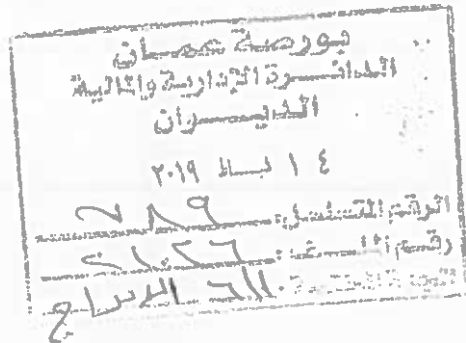 بورصة عمان
الدائرة الإدارية والمالية
الديوان
١٤ شباط ٢٠١٩
الرقم المتسلسل: ٦٨٩
رقم الملف:
الجهة المختصة: الادراج